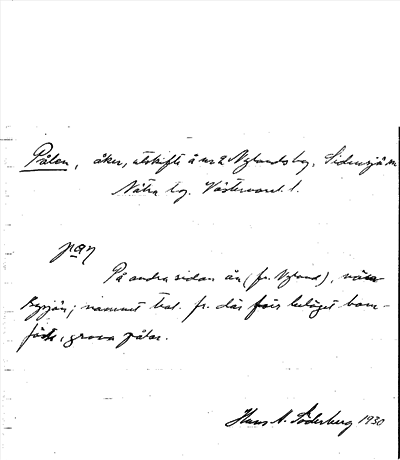 Pålen, åker, utskifte å nr 2 Nylands by, Sidensjö sn
Nätra tg. Västernorrl. l.
På andra sidan ån (fr. Nyland), nära
Bysjön; namnet trol. fr. där förr beläget bom-
fäste, grova pålar.
Hans A. Söderberg 1930